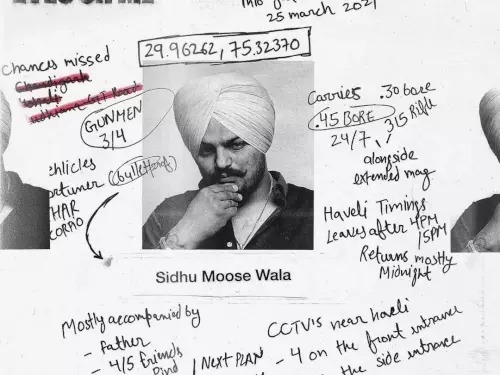 25 march 2021
29.96262, 75.32370
chances missed
Chandigarh
GUNMEN
3/4
Carries .30 bore
.45 BORE
315 Rifle
24/7
alongside
extended mag
(bulletproof)
Haveli Timings
Leaves after 4PM
/5PM
Returns mostly
Midnight
Sidhu Moose Wala
Mostly accompanied by
- Father
- 4/5 friends
CCTV's near haveli
- 4 on the front entrance
the side entrance
NEXT PLAN